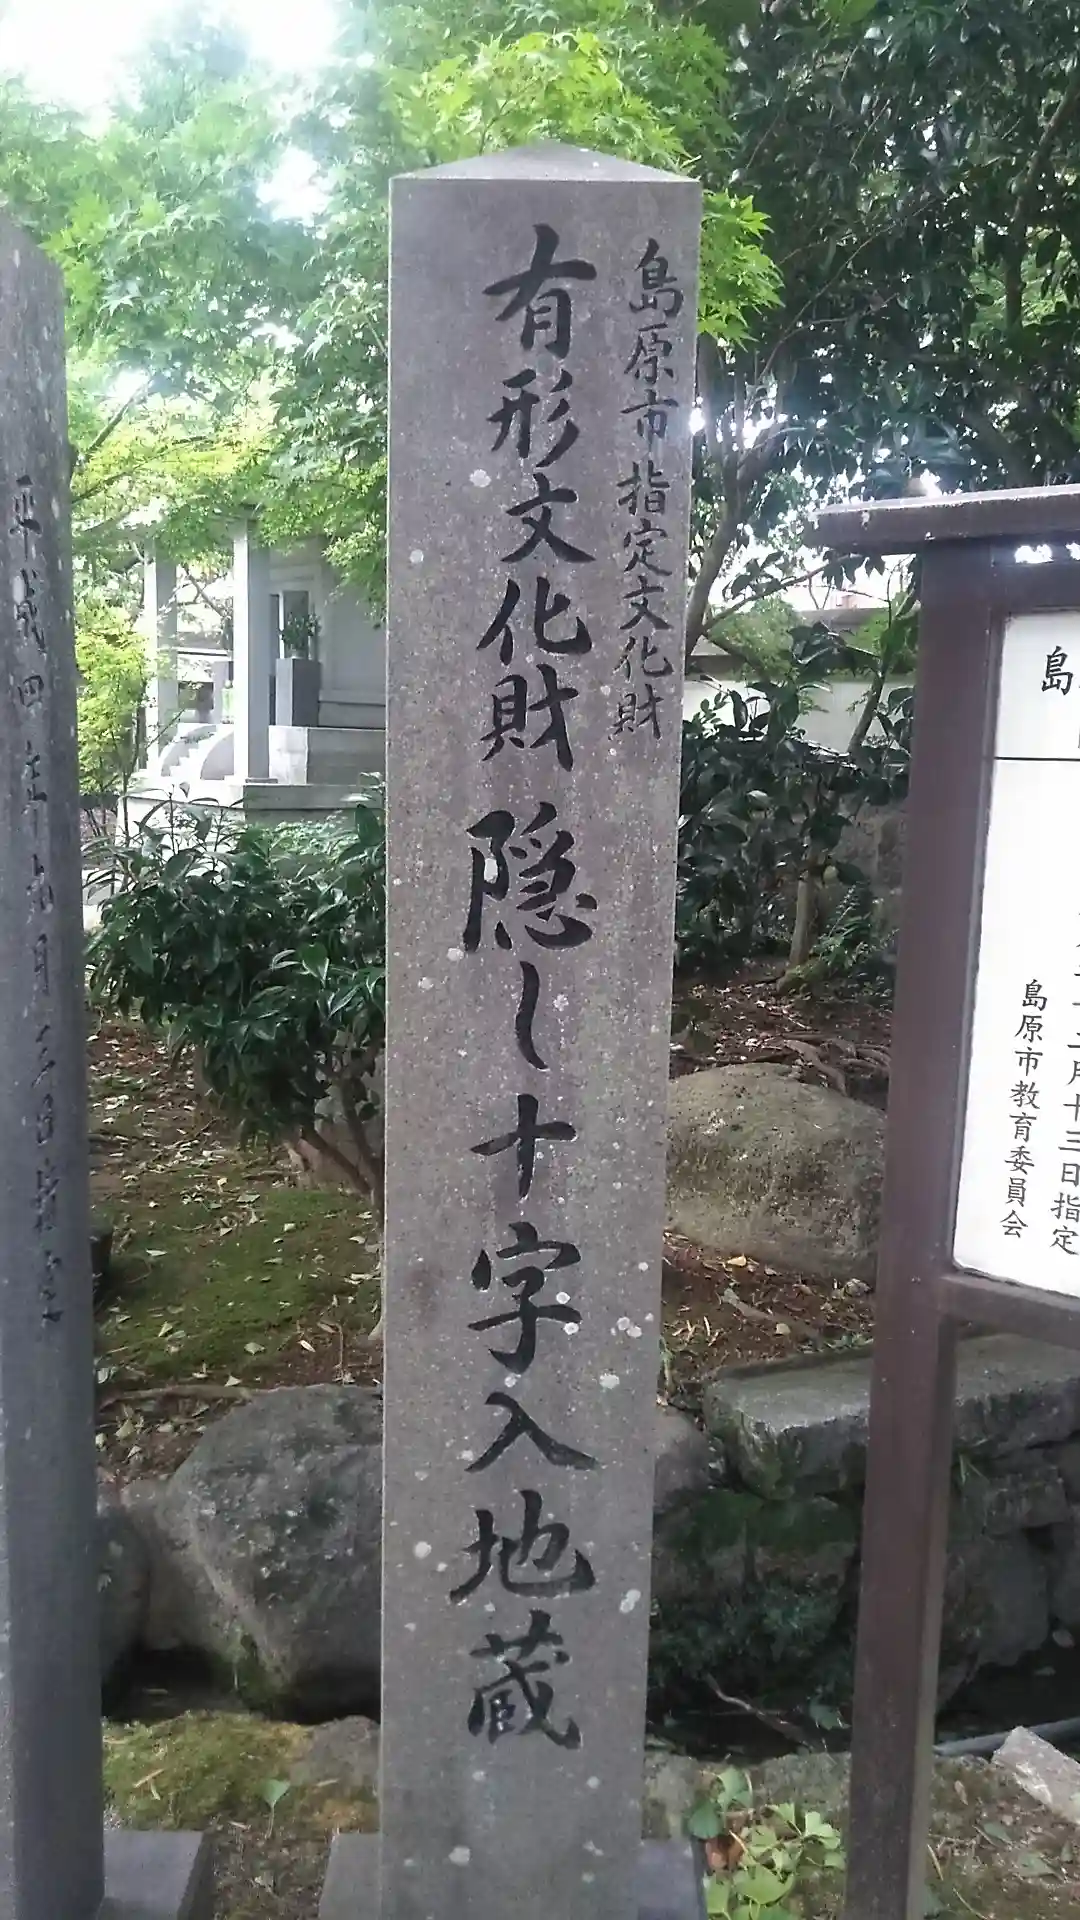 島原市指定文化財
有形文化財 隠し十字入地蔵
平成四年九月
島
月十三日指定
島原市教育委員会